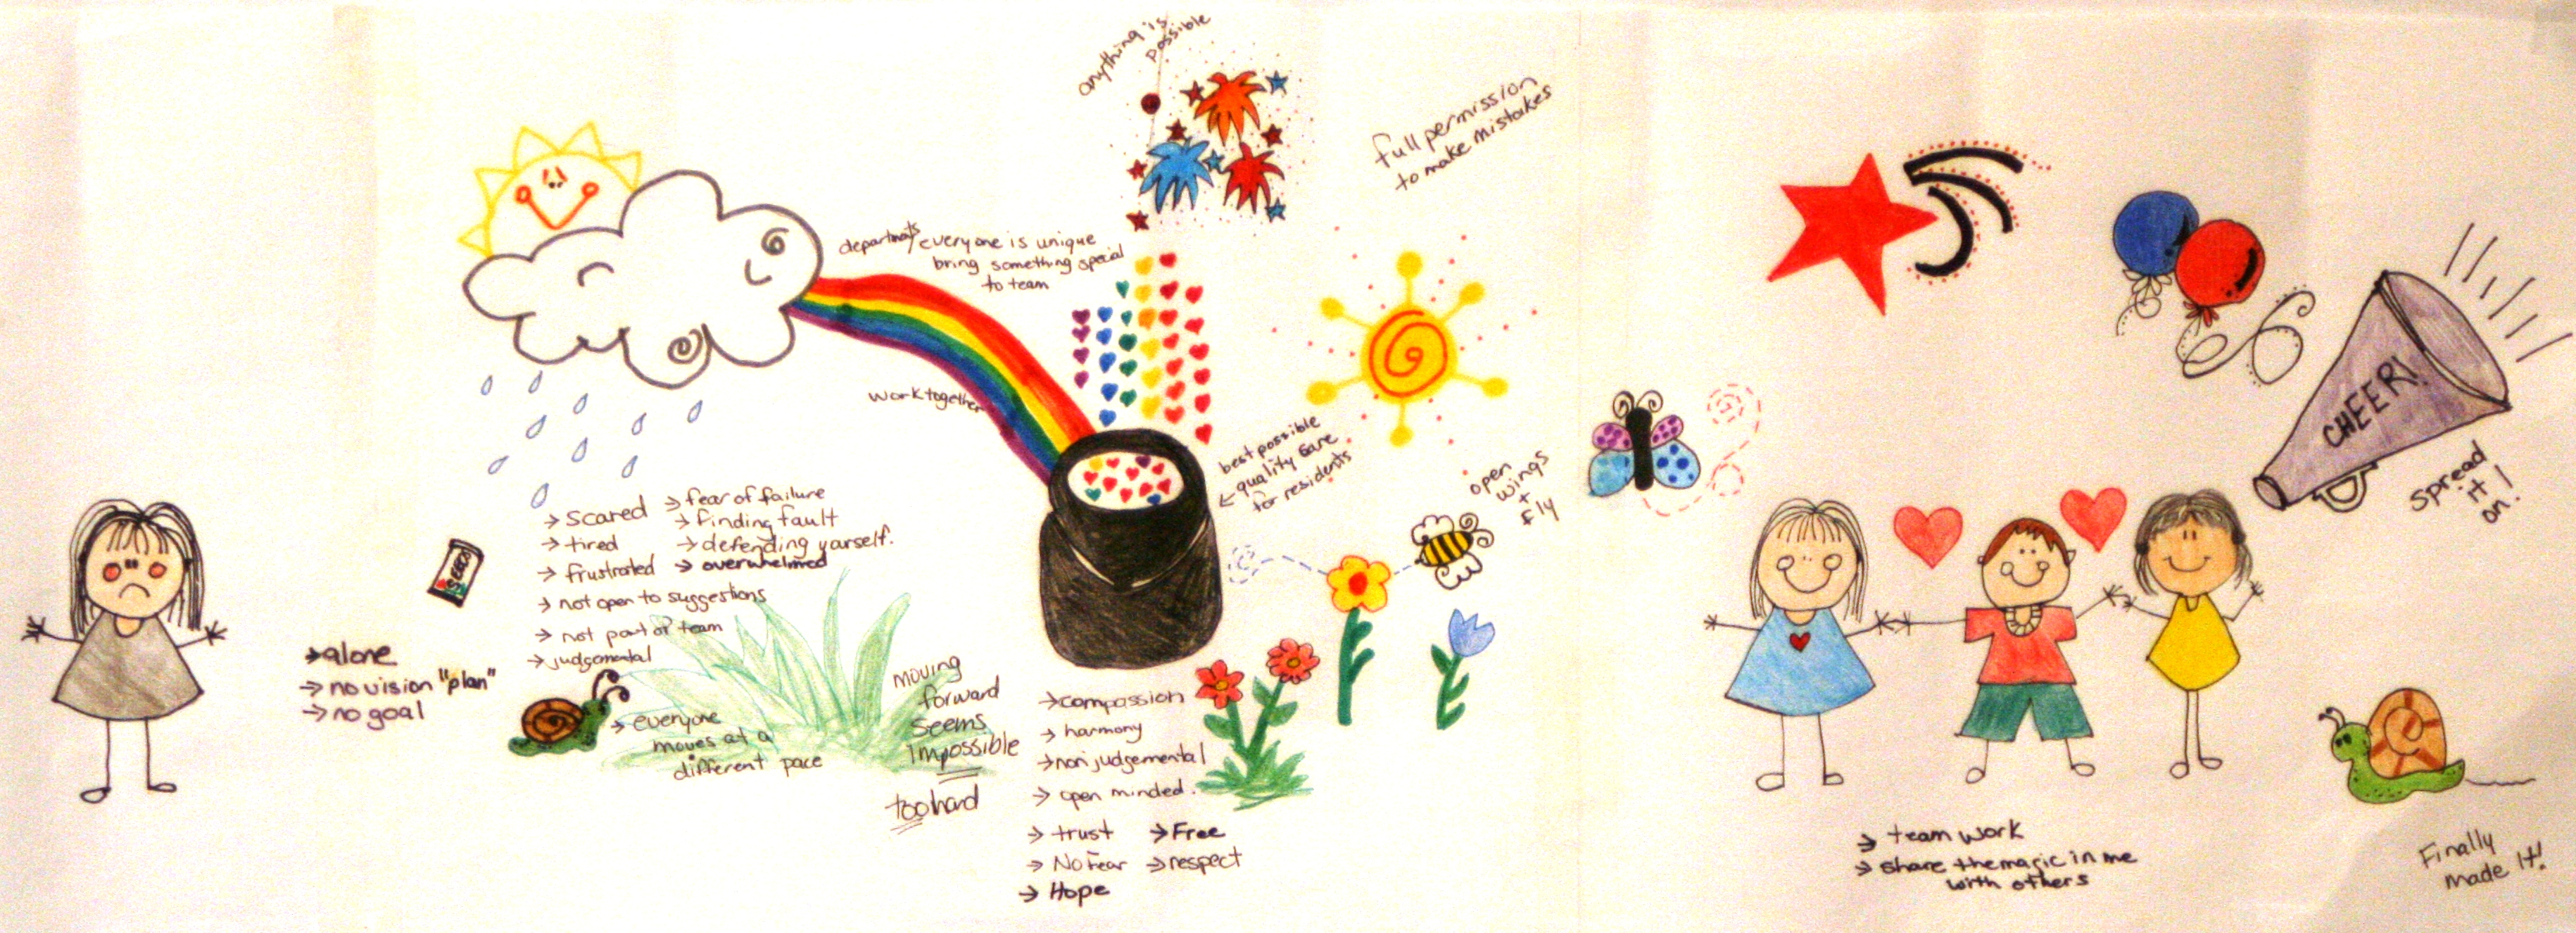 → alone
→ no vision "plan"
→ no goal
SEED
→ scared
→ tired
→ frustrated
→ not open to suggestions
→ not part of team
→ judgemental
→ fear of failure
→ finding fault
→ defending yourself.
→ overwhelmed
→ everyone
moves at a
different pace
moving
forward
seems
impossible
too hard
departments/everyone is unique
bring something special
to team
work together
anything is
possible
full permission
to make mistakes
best possible
← quality care
for residents
open
wings
+
fly
→ compassion
→ harmony
→ non judgemental
→ open minded.
→ trust
→ No Fear
→ Hope
→ Free
→ respect
CHEER!
spread
it
on!
→ team work
→ share the magic in me
with others
Finally
made it!